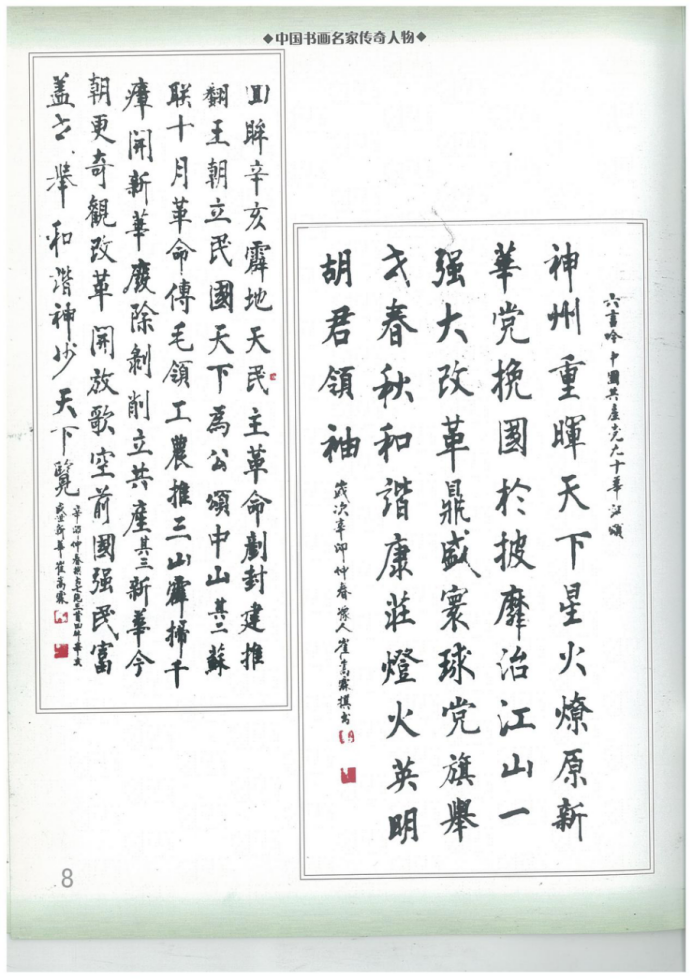 ◆中国书画名家传奇人物◆
回眸辛亥霹地天民主革命劃封建推
翻王朝立民國天下為公頌中山其二蘇
联十月革命傳毛領工農推三山霹掃千
瘴開新華廢除剝削立共產其三新華今
朝更奇觀改革開放歌空前國强民富
盖世舉和諧神州天下覽
辛卯仲春
崔嵩霖
六言吟中國共產党九十華江頌
神州重暉天下星火燎原新
華党挽國於披靡治江山一
强大改革鼎盛寰球党旗舉
世春秋和諧康莊燈火英明
胡君領袖
歲次辛卯仲春豫人崔嵩霖撰書
8